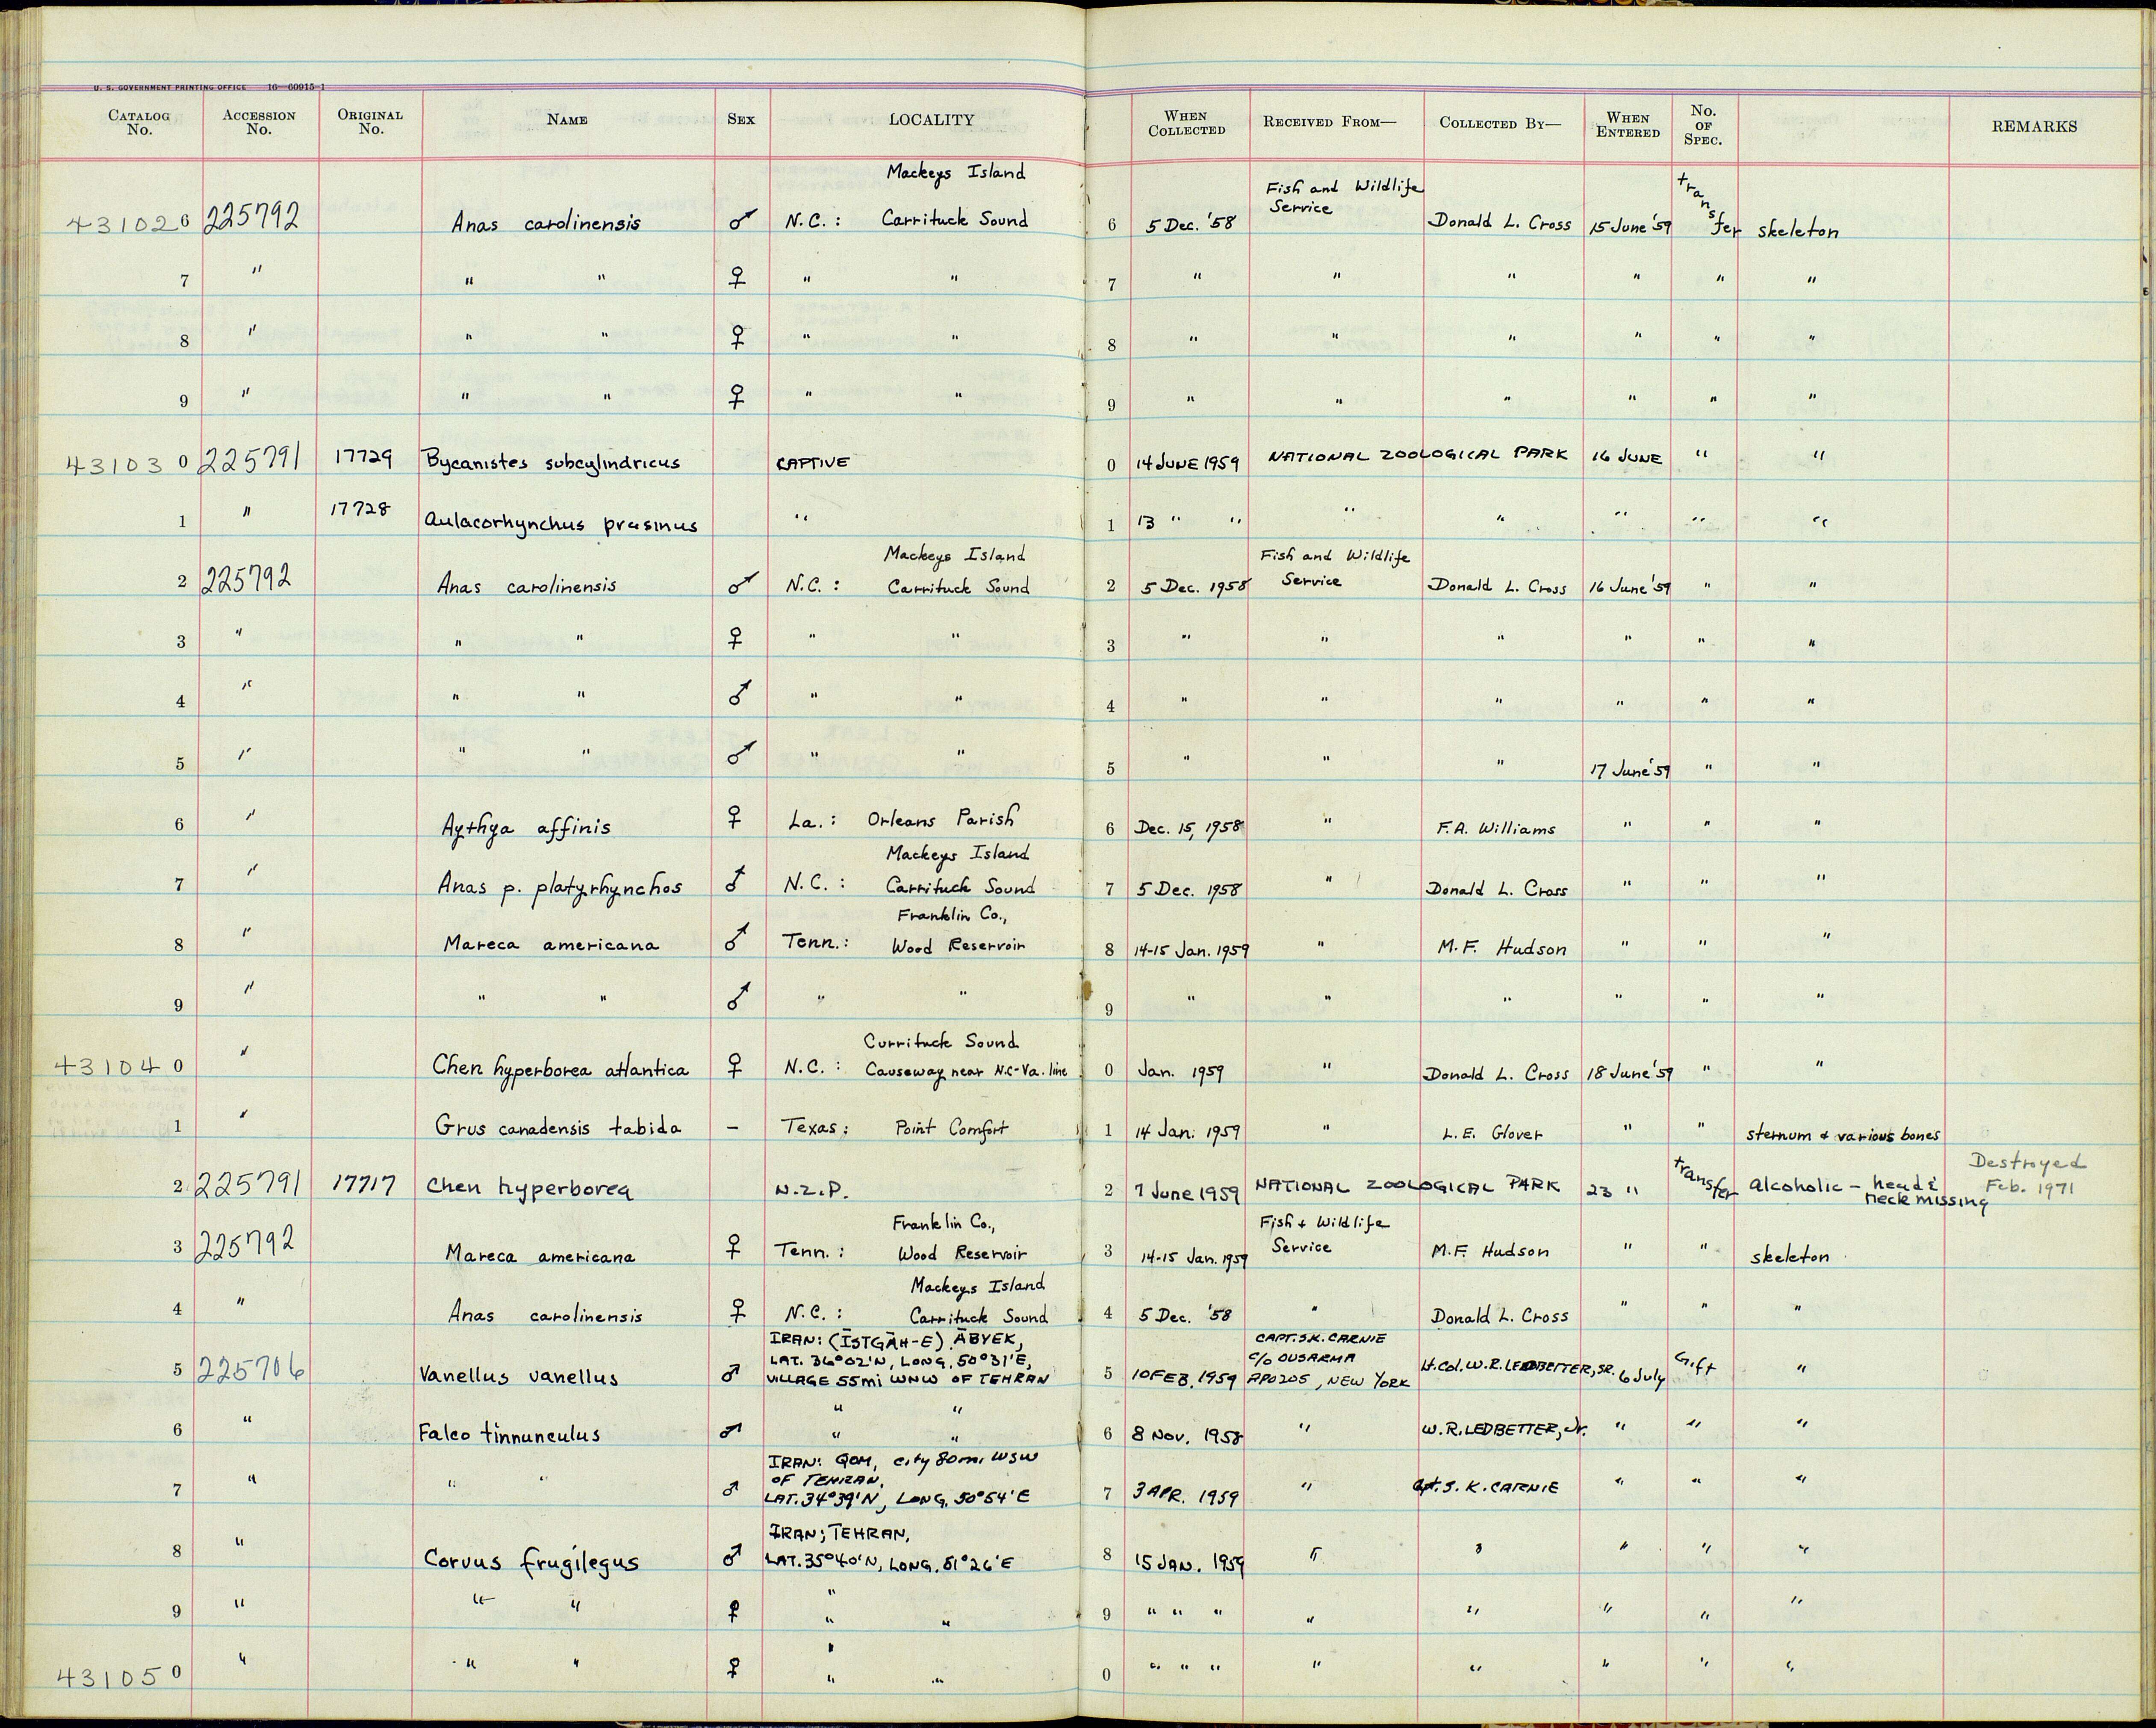 U. S. GOVERNMENT PRINTING OFFICE 16—60915-1
CATALOG No. ACCESSION No. ORIGINAL No. NAME SEX LOCALITY WHEN COLLECTED RECEIVED FROM— COLLECTED BY— WHEN ENTERED No. OF SPEC. REMARKS
Mackeys Island
431026 225792 Anas carolinensis ♂ N.C.: Carrituck Sound 6 5 Dec. '58 Fish and Wildlife Service Donald L. Cross 15 June '59 transfer skeleton
7 " " " ♀ " " 7 " " " " " "
8 " " " ♀ " " 8 " " " " " "
9 " " " ♀ " " 9 " " " " " "
431030 225791 17729 Bycanistes subcylindricus CAPTIVE 0 14 JUNE 1959 NATIONAL ZOOLOGICAL PARK 16 JUNE " "
1 " 17728 Aulacorhynchus prasinus " 1 13 " " " " " " "
Mackeys Island
2 225792 Anas carolinensis ♂ N.C.: Carrituck Sound 2 5 Dec. 1958 Fish and Wildlife Service Donald L. Cross 16 June '59 " "
3 " " " ♀ " " 3 " " " " " "
4 " " " ♂ " " 4 " " " " " "
5 " " " ♂ " " 5 " " " 17 June '59 " "
6 " Aythya affinis ♀ La.: Orleans Parish 6 Dec. 15, 1958 " F.A. Williams " " "
Mackeys Island
7 " Anas p. platyrhynchos ♂ N.C.: Carrituck Sound 7 5 Dec. 1958 " Donald L. Cross " " "
Franklin Co.,
8 " Mareca americana ♂ Tenn.: Wood Reservoir 8 14-15 Jan. 1959 " M.F. Hudson " " "
9 " " " ♂ " " 9 " " " " " "
Currituck Sound
431040 " Chen hyperborea atlantica ♀ N.C.: Causeway near N.C-Va. line 0 Jan. 1959 " Donald L. Cross 18 June '59 " "
1 " Grus canadensis tabida – Texas: Point Comfort 1 14 Jan. 1959 " L.E. Glover " " sternum & various bones
2 225791 17717 Chen hyperborea N.Z.P. 2 7 June 1959 NATIONAL ZOOLOGICAL PARK 23 " transfer alcoholic – head & neck missing Destroyed Feb. 1971
Franklin Co.,
3 225792 Mareca americana ♀ Tenn.: Wood Reservoir 3 14-15 Jan. 1959 Fish + Wildlife Service M.F. Hudson " " skeleton
Mackeys Island
4 " Anas carolinensis ♀ N.C.: Carrituck Sound 4 5 Dec. '58 " Donald L. Cross " " "
IRAN: (ĪSTGĀH-E) ĀBYEK,
LAT. 36°02'N, LONG. 50°31'E,
5 225706 Vanellus vanellus ♂ VILLAGE 55mi WNW OF TEHRAN 5 10 FEB. 1959 CAPT. S.K. CARNIE c/o OUSARMA APO 205, NEW YORK Lt. Col. W.R. LEDBETTER, SR. 6 July Gift "
" "
6 " Falco tinnunculus ♂ " " 6 8 Nov. 1958 " W.R. LEDBETTER, Jr. " " "
IRAN: QOM, city 80mi WSW
OF TEHRAN,
7 " " " ♂ LAT. 34°39'N, LONG. 50°54'E 7 3 APR. 1959 " Cpt. S.K. CARNIE " " "
IRAN; TEHRAN,
8 " Corvus frugilegus ♂ LAT. 35°40'N, LONG. 51°26'E 8 15 JAN. 1959 " " " " "
"
9 " " " ♀ " " 9 " " " " " " " "
"
431050 " " " ♀ " " 0 " " " " " " " "